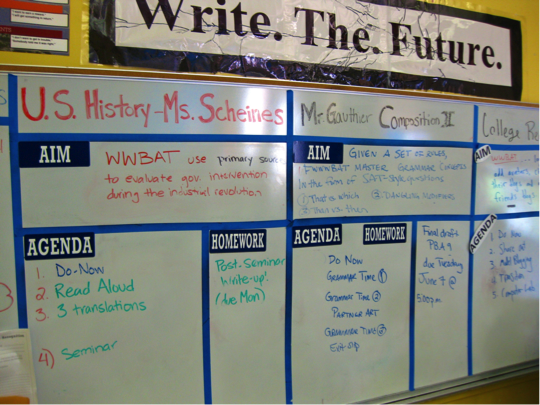 Write. The. Future.
U.S. History - Ms. Scheines
AIM
WWBAT use primary
to evaluate gov. intervention
during the industrial revolution
AGENDA
1. Do-Now
2. Read Aloud
3. 3 translations
4) Seminar
HOMEWORK
Post-Seminar
write-up!
(due Mon)
Mr. Gauthier Composition II
AIM
GIVEN A SET OF RULES,
MASTER GRAMMAR CONCEPTS
In the form of SAT-Style questions
① That vs which ② DANGLING MODIFIERS
AGENDA
HOMEWORK
Do Now
GRAMMAR TIME ①
GRAMMAR TIME ②
PARTNER ART
GRAMMAR TIME ③
Final draft
PBA 9
due Tuesday
June 7 @
5:00pm
College
AIM
AGENDA
1 Do Now
2 Share out